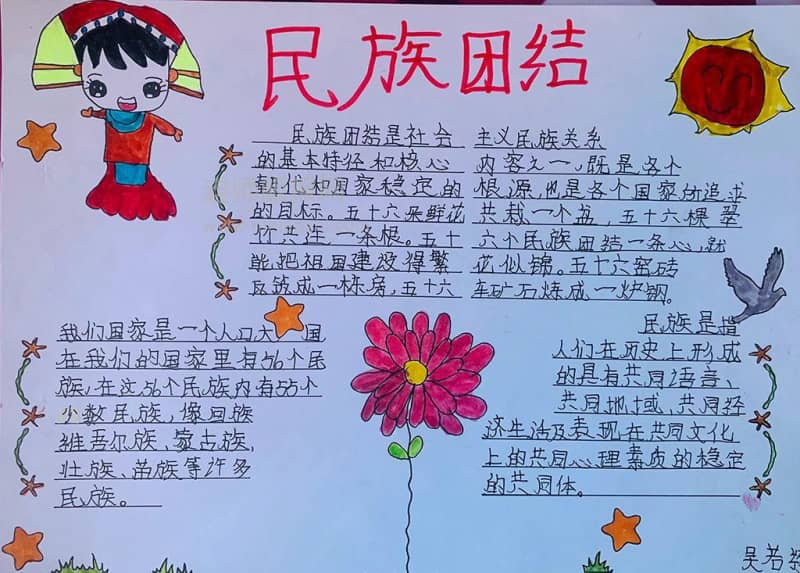 民族团结
民族团结是社会主义民族关系
的基本特征和核心内容之一,既是各个
朝代和国家稳定的根源,也是各个国家所追求
的目标。五十六朵鲜花共栽一个盆,五十六棵翠
竹共连一条根。五十六个民族团结一条心,就
能把祖国建设得繁花似锦。五十六窑砖
瓦筑成一栋房,五十六车矿石炼成一炉钢。
我们国家是一个人口大国
在我们的国家里有56个民
族,在这56个民族内有55个
少数民族,像回族
维吾尔族、蒙古族,
壮族、苗族等许多
民族。
民族是指
人们在历史上形成
的具有共同语言、
共同地域、共同经
济生活及表现在共同文化
上的共同心理素质的稳定
的共同体。
吴若